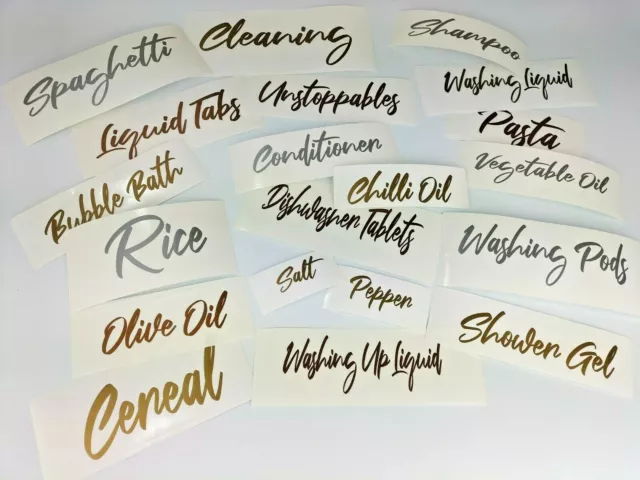 Spaghetti
Cleaning
Shampoo
Liquid Tabs
Unstoppables
Washing Liquid
Pasta
Bubble Bath
Conditioner
Chilli Oil
Vegetable Oil
Rice
Dishwasher Tablets
Washing Pods
Salt
Pepper
Olive Oil
Washing Up Liquid
Shower Gel
Cereal